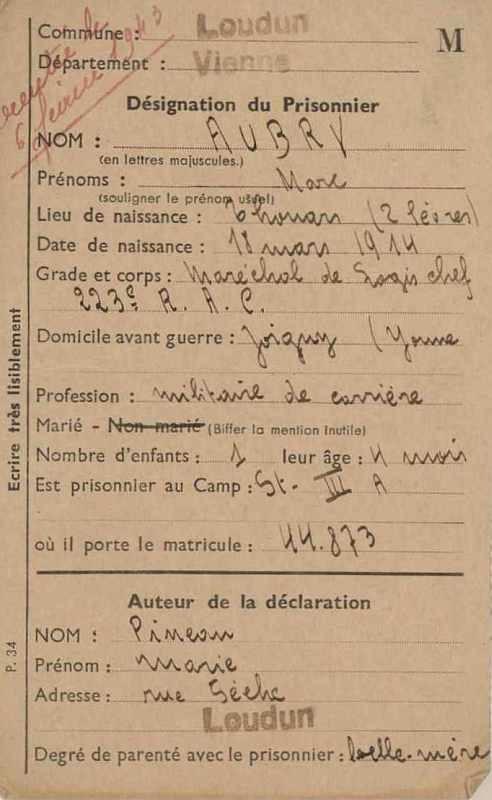 Commune : Loudun
M
Département : Vienne
6 février 1943
Désignation du Prisonnier
NOM : AUBRY
(en lettres majuscules.)
Prénoms : Marc
(souligner le prénom usuel)
Lieu de naissance : Thouars (2 Sèvres)
Date de naissance : 18 mars 1914
Grade et corps : Maréchal de Logis chef
223e R. A. C.
Domicile avant guerre : Joigny (Yonne
Profession : militaire de carrière
Marié - Non marié (Biffer la mention inutile)
Nombre d'enfants : 1 leur âge : 4 mois
Est prisonnier au Camp : St- III A
où il porte le matricule : 44.873
Ecrire très lisiblement
Auteur de la déclaration
NOM : Pineau
Prénom : Marie
Adresse : rue
Loudun
Degré de parenté avec le prisonnier : belle-mère
P. 34